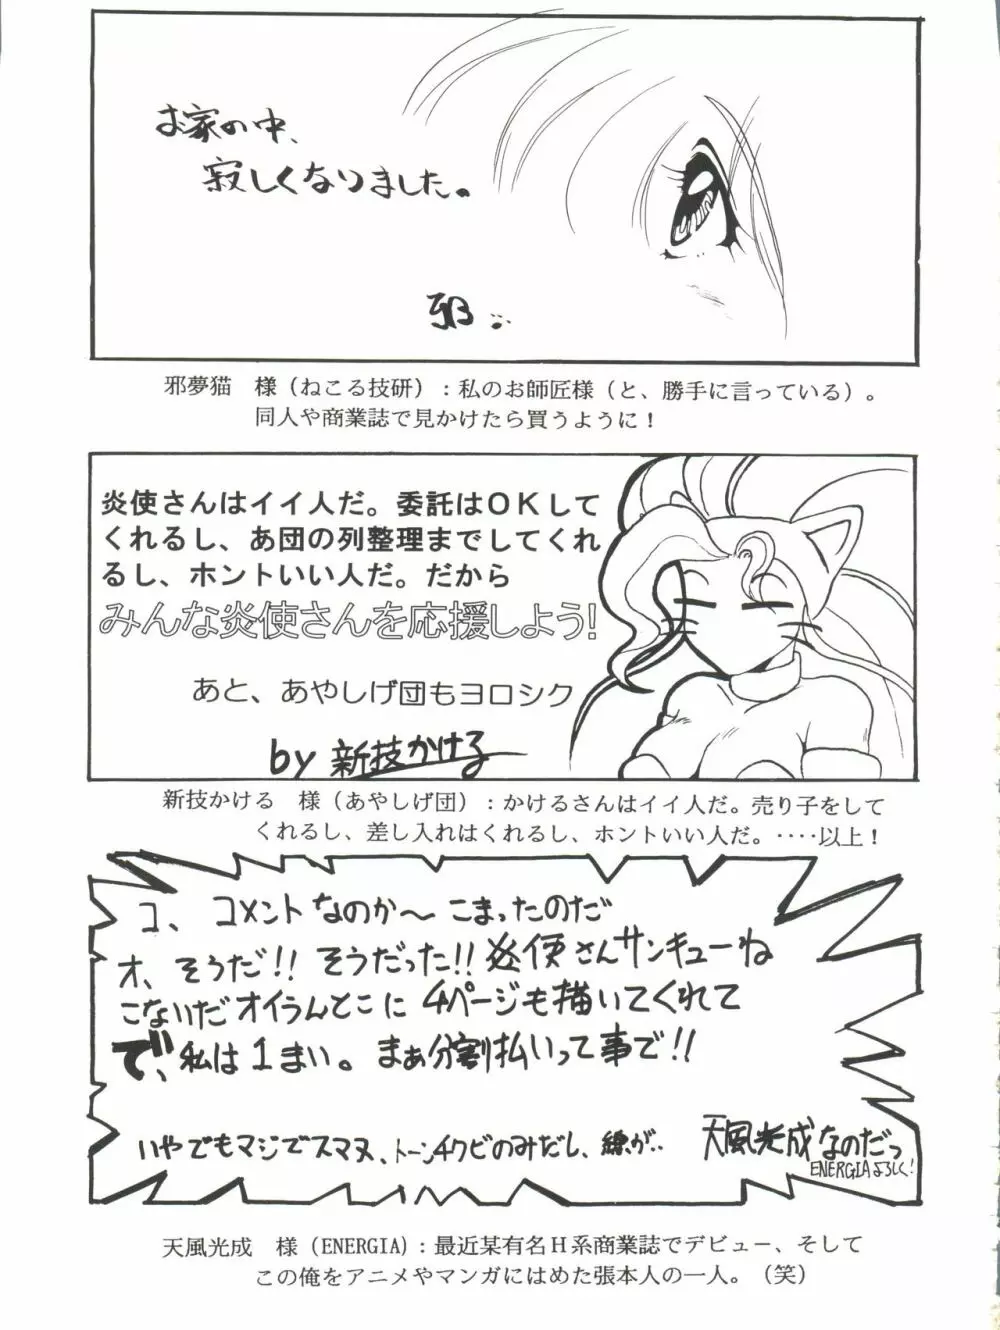 お家の中、
寂しくなりました。
邪夢猫　様（ねこる技研）：私のお師匠様（と、勝手に言っている）。
同人や商業誌で見かけたら買うように！
炎使さんはイイ人だ。委託はＯＫして
くれるし、あ団の列整理までしてくれ
るし、ホントいい人だ。だから
みんな炎使さんを応援しよう!
あと、あやしげ団もヨロシク
by 新技かける
新技かける　様（あやしげ団）：かけるさんはイイ人だ。売り子をして
くれるし、差し入れはくれるし、ホントいい人だ。‥‥以上！
コ、コメントなのか〜こまったのだ
オ、そうだ!! そうだった!! 炎使さんサンキューね
こないだオイらんとこに4ページも描いてくれて
で、私は1まい。まぁ分割払いって事で!!
いやでもマジでスマヌ、トーンチクビのみだし、線が‥
天風光成なのだっ
ENERGIAよろしく!
天風光成　様（ENERGIA）：最近某有名Ｈ系商業誌でデビュー、そして
この俺をアニメやマンガにはめた張本人の一人。（笑）